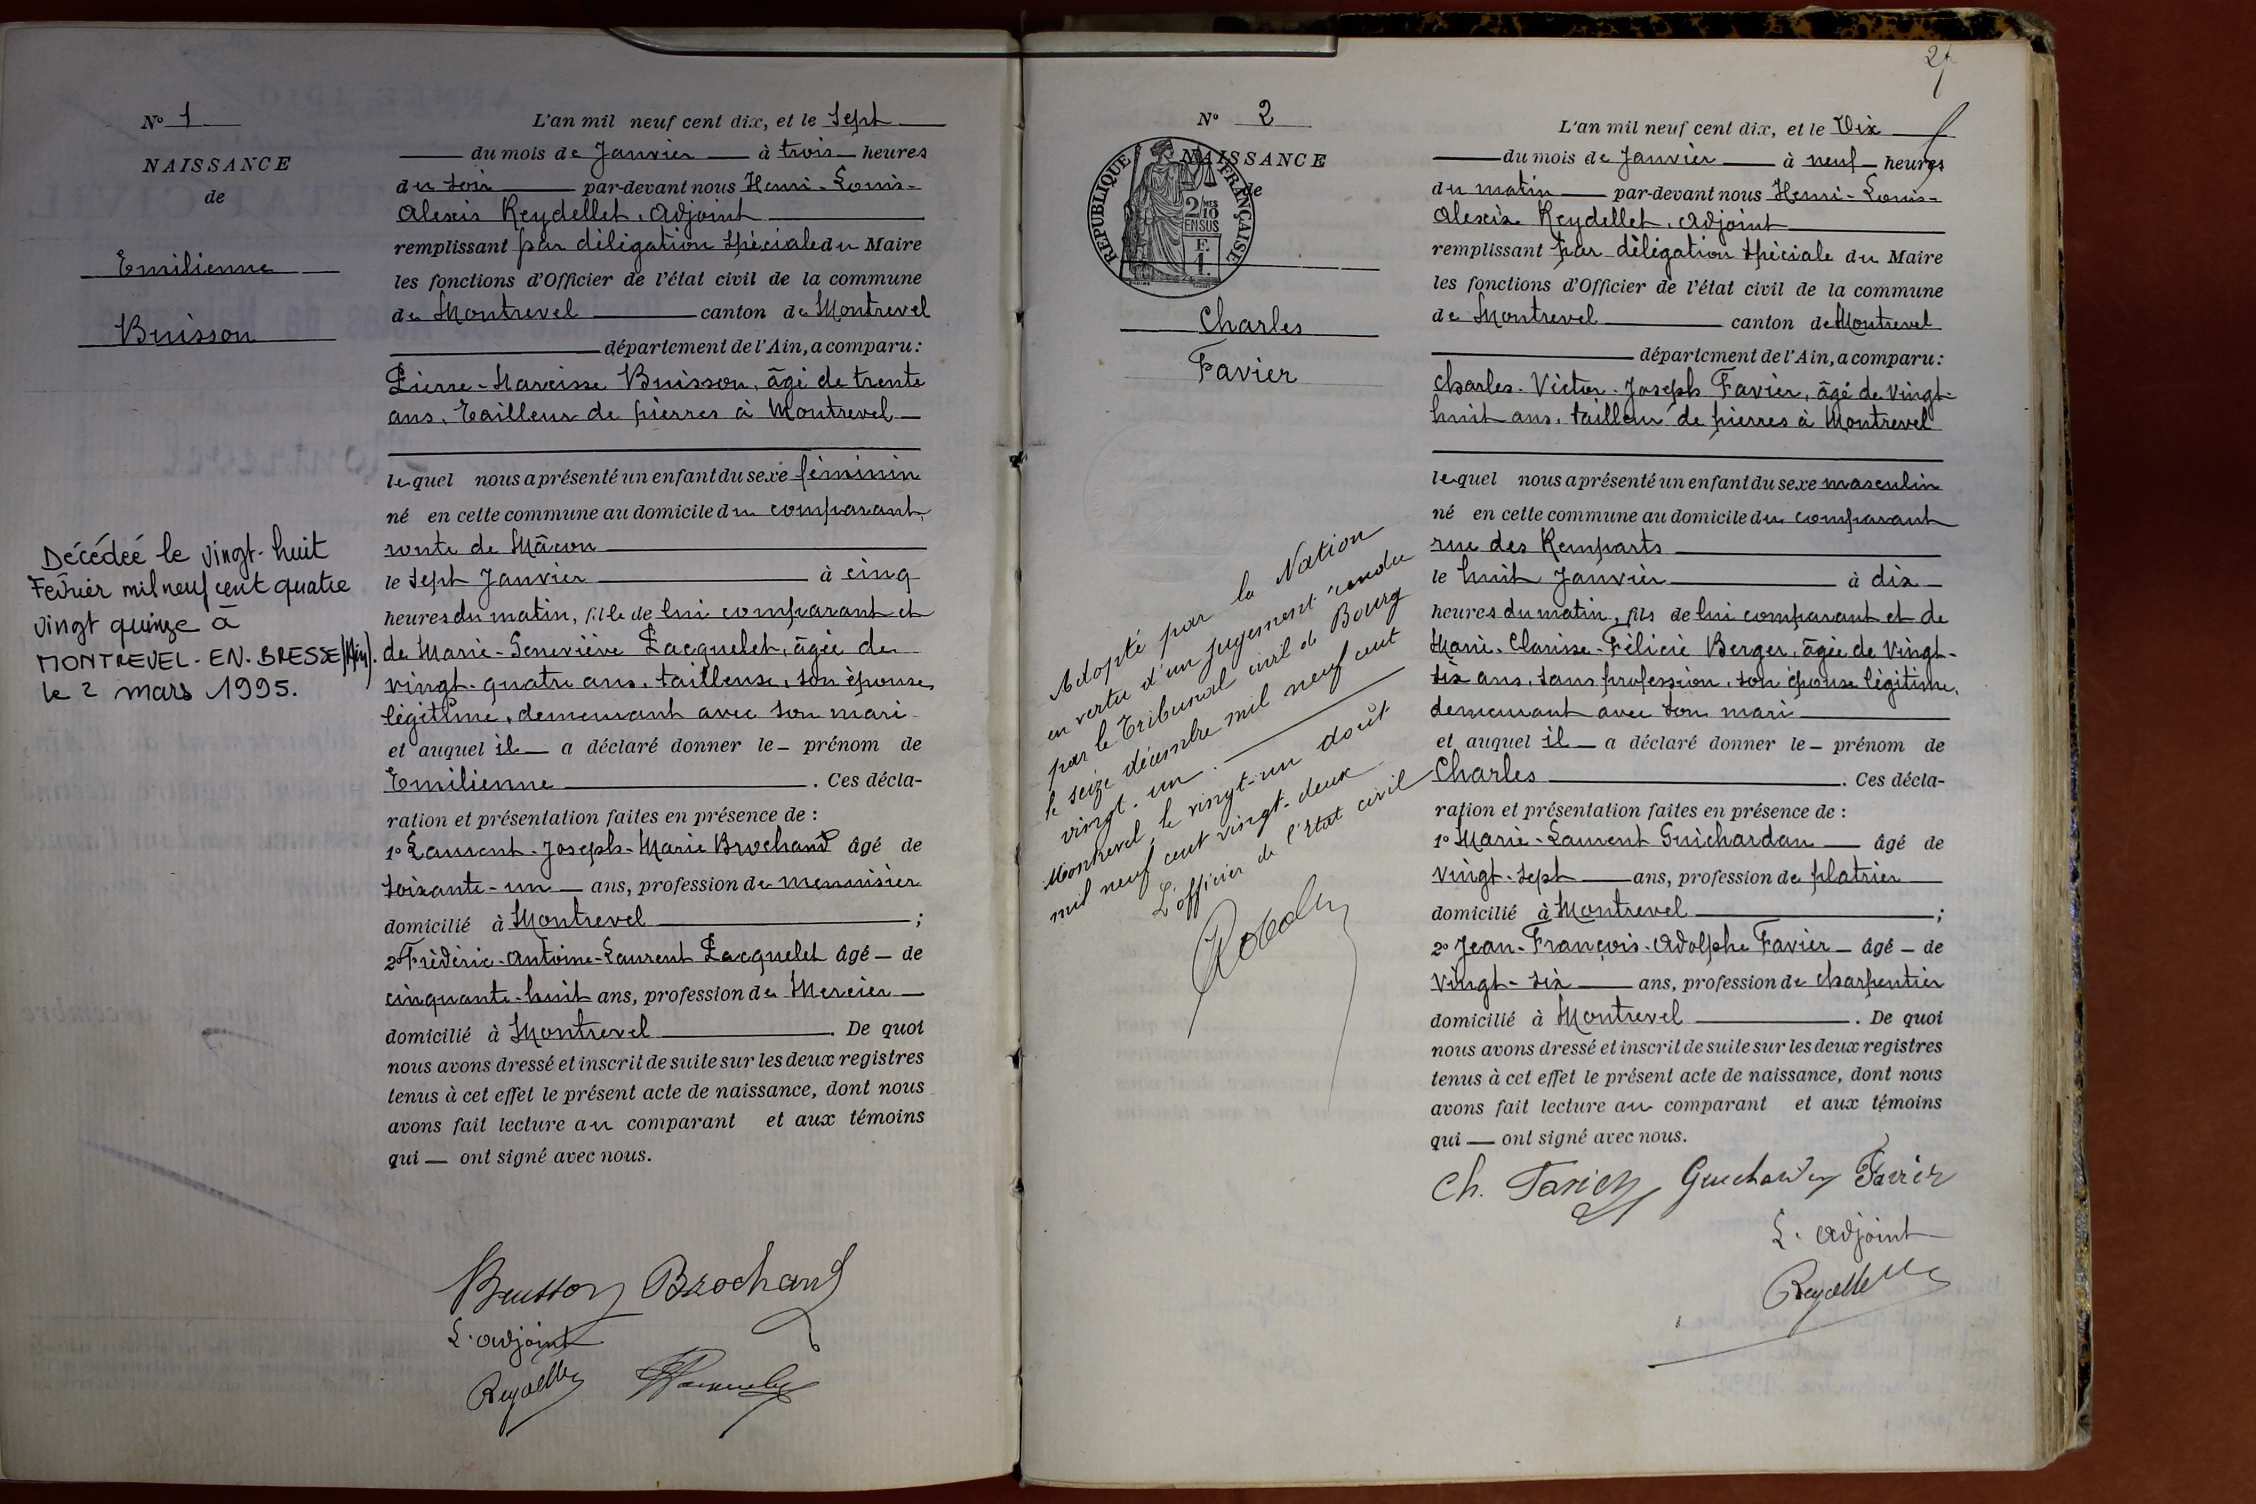 Nº 1
NAISSANCE
de
Emilienne
Buisson
Décédeé le vingt-huit
Février mil neuf cent quatre
vingt quinze à
MONTREVEL-EN-BRESSE (Ain).
le 2 mars 1995.
L'an mil neuf cent dix, et le sept
du mois de Janvier à trois heures
du soir par-devant nous Henri-Louis-
Alexis Reydellet, Adjoint
remplissant par délégation spéciale du Maire
les fonctions d'Officier de l'état civil de la commune
de Montrevel canton de Montrevel
département de l'Ain, a comparu :
Pierre-Narcisse Buisson, âgé de trente
ans, tailleur de pierres à Montrevel
lequel nous a présenté un enfant du sexe féminin
né en cette commune au domicile du comparant,
route de Mâcon
le sept Janvier à cinq
heures du matin, fille de lui comparant et
de Marie-Geneviève Pacquelet, âgée de
vingt-quatre ans, tailleuse, son épouse
légitime, demeurant avec son mari
et auquel il a déclaré donner le prénom de
Emilienne. Ces décla-
ration et présentation faites en présence de :
1º Laurent-Joseph-Marie Brochand âgé de
soixante-un ans, profession de menuisier
domicilié à Montrevel ;
2º Frédéric-Antoine-Laurent Pacquelet âgé de
cinquante-huit ans, profession de Mercier
domicilié à Montrevel. De quoi
nous avons dressé et inscrit de suite sur les deux registres
tenus à cet effet le présent acte de naissance, dont nous
avons fait lecture au comparant et aux témoins
qui ont signé avec nous.
Buisson Brochand
L'adjoint
Reydellet
2
Nº 2
NAISSANCE
de
REPUBLIQUE FRANÇAISE
2/10
EN SUS
F.
1.
Charles
Favier
Adopté par la Nation
en vertu d'un jugement rendu
par le Tribunal civil de Bourg
le seize décembre mil neuf cent
vingt-un.
Montrevel, le vingt-un août
mil neuf cent vingt-deux
L'officier de l'Etat civil
L'an mil neuf cent dix, et le Dix
du mois de Janvier à neuf heures
du matin par-devant nous Henri-Louis-
Alexis Reydellet, Adjoint
remplissant par délégation spéciale du Maire
les fonctions d'Officier de l'état civil de la commune
de Montrevel canton de Montrevel
département de l'Ain, a comparu :
Charles-Victor-Joseph Favier, âgé de vingt-
huit ans, tailleur de pierres à Montrevel
lequel nous a présenté un enfant du sexe masculin
né en cette commune au domicile du comparant
rue des Remparts
le huit Janvier à dix
heures du matin, fils de lui comparant et de
Marie-Clarisse-Félicie Berger, âgée de vingt-
six ans, sans profession, son épouse légitime,
demeurant avec son mari
et auquel il a déclaré donner le prénom de
Charles. Ces décla-
ration et présentation faites en présence de :
1º Marie-Laurent Guichardan âgé de
vingt-sept ans, profession de platrier
domicilié à Montrevel ;
2º Jean-François-Adolphe Favier âgé de
vingt-six ans, profession de charpentier
domicilié à Montrevel. De quoi
nous avons dressé et inscrit de suite sur les deux registres
tenus à cet effet le présent acte de naissance, dont nous
avons fait lecture au comparant et aux témoins
qui ont signé avec nous.
Ch. Favier Guichardan Favier
L'adjoint
Reydellet